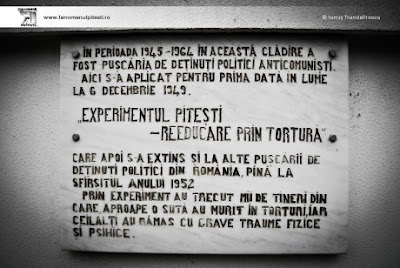 www.fenomenulpitesti.ro
© Ionuţ Trandafirescu
ÎN PERIOADA 1945-1964 ÎN ACEASTĂ CLĂDIRE A
FOST PUSCĂRIA DE DEŢINUŢI POLITICI ANTICOMUNISTI.
AICI S-A APLICAT PENTRU PRIMA DATĂ ÎN LUME
LA 6 DECEMBRIE 1949.
„EXPERIMENTUL PITEŞTI
–REEDUCARE PRIN TORTURĂ”
CARE APOI S-A EXTINS SI LA ALTE PUSCĂRII DE
DEŢINUŢI POLITICI DIN ROMÂNIA, PÎNĂ LA
SFIRSITUL ANULUI 1952
PRIN EXPERIMENT AU TRECUT MII DE TINERI DIN
CARE, APROAPE O SUTĂ AU MURIT ÎN TORTURI, IAR
CEILALŢI AU RĂMAS CU GRAVE TRAUME FIZICE
ŞI PSIHICE.